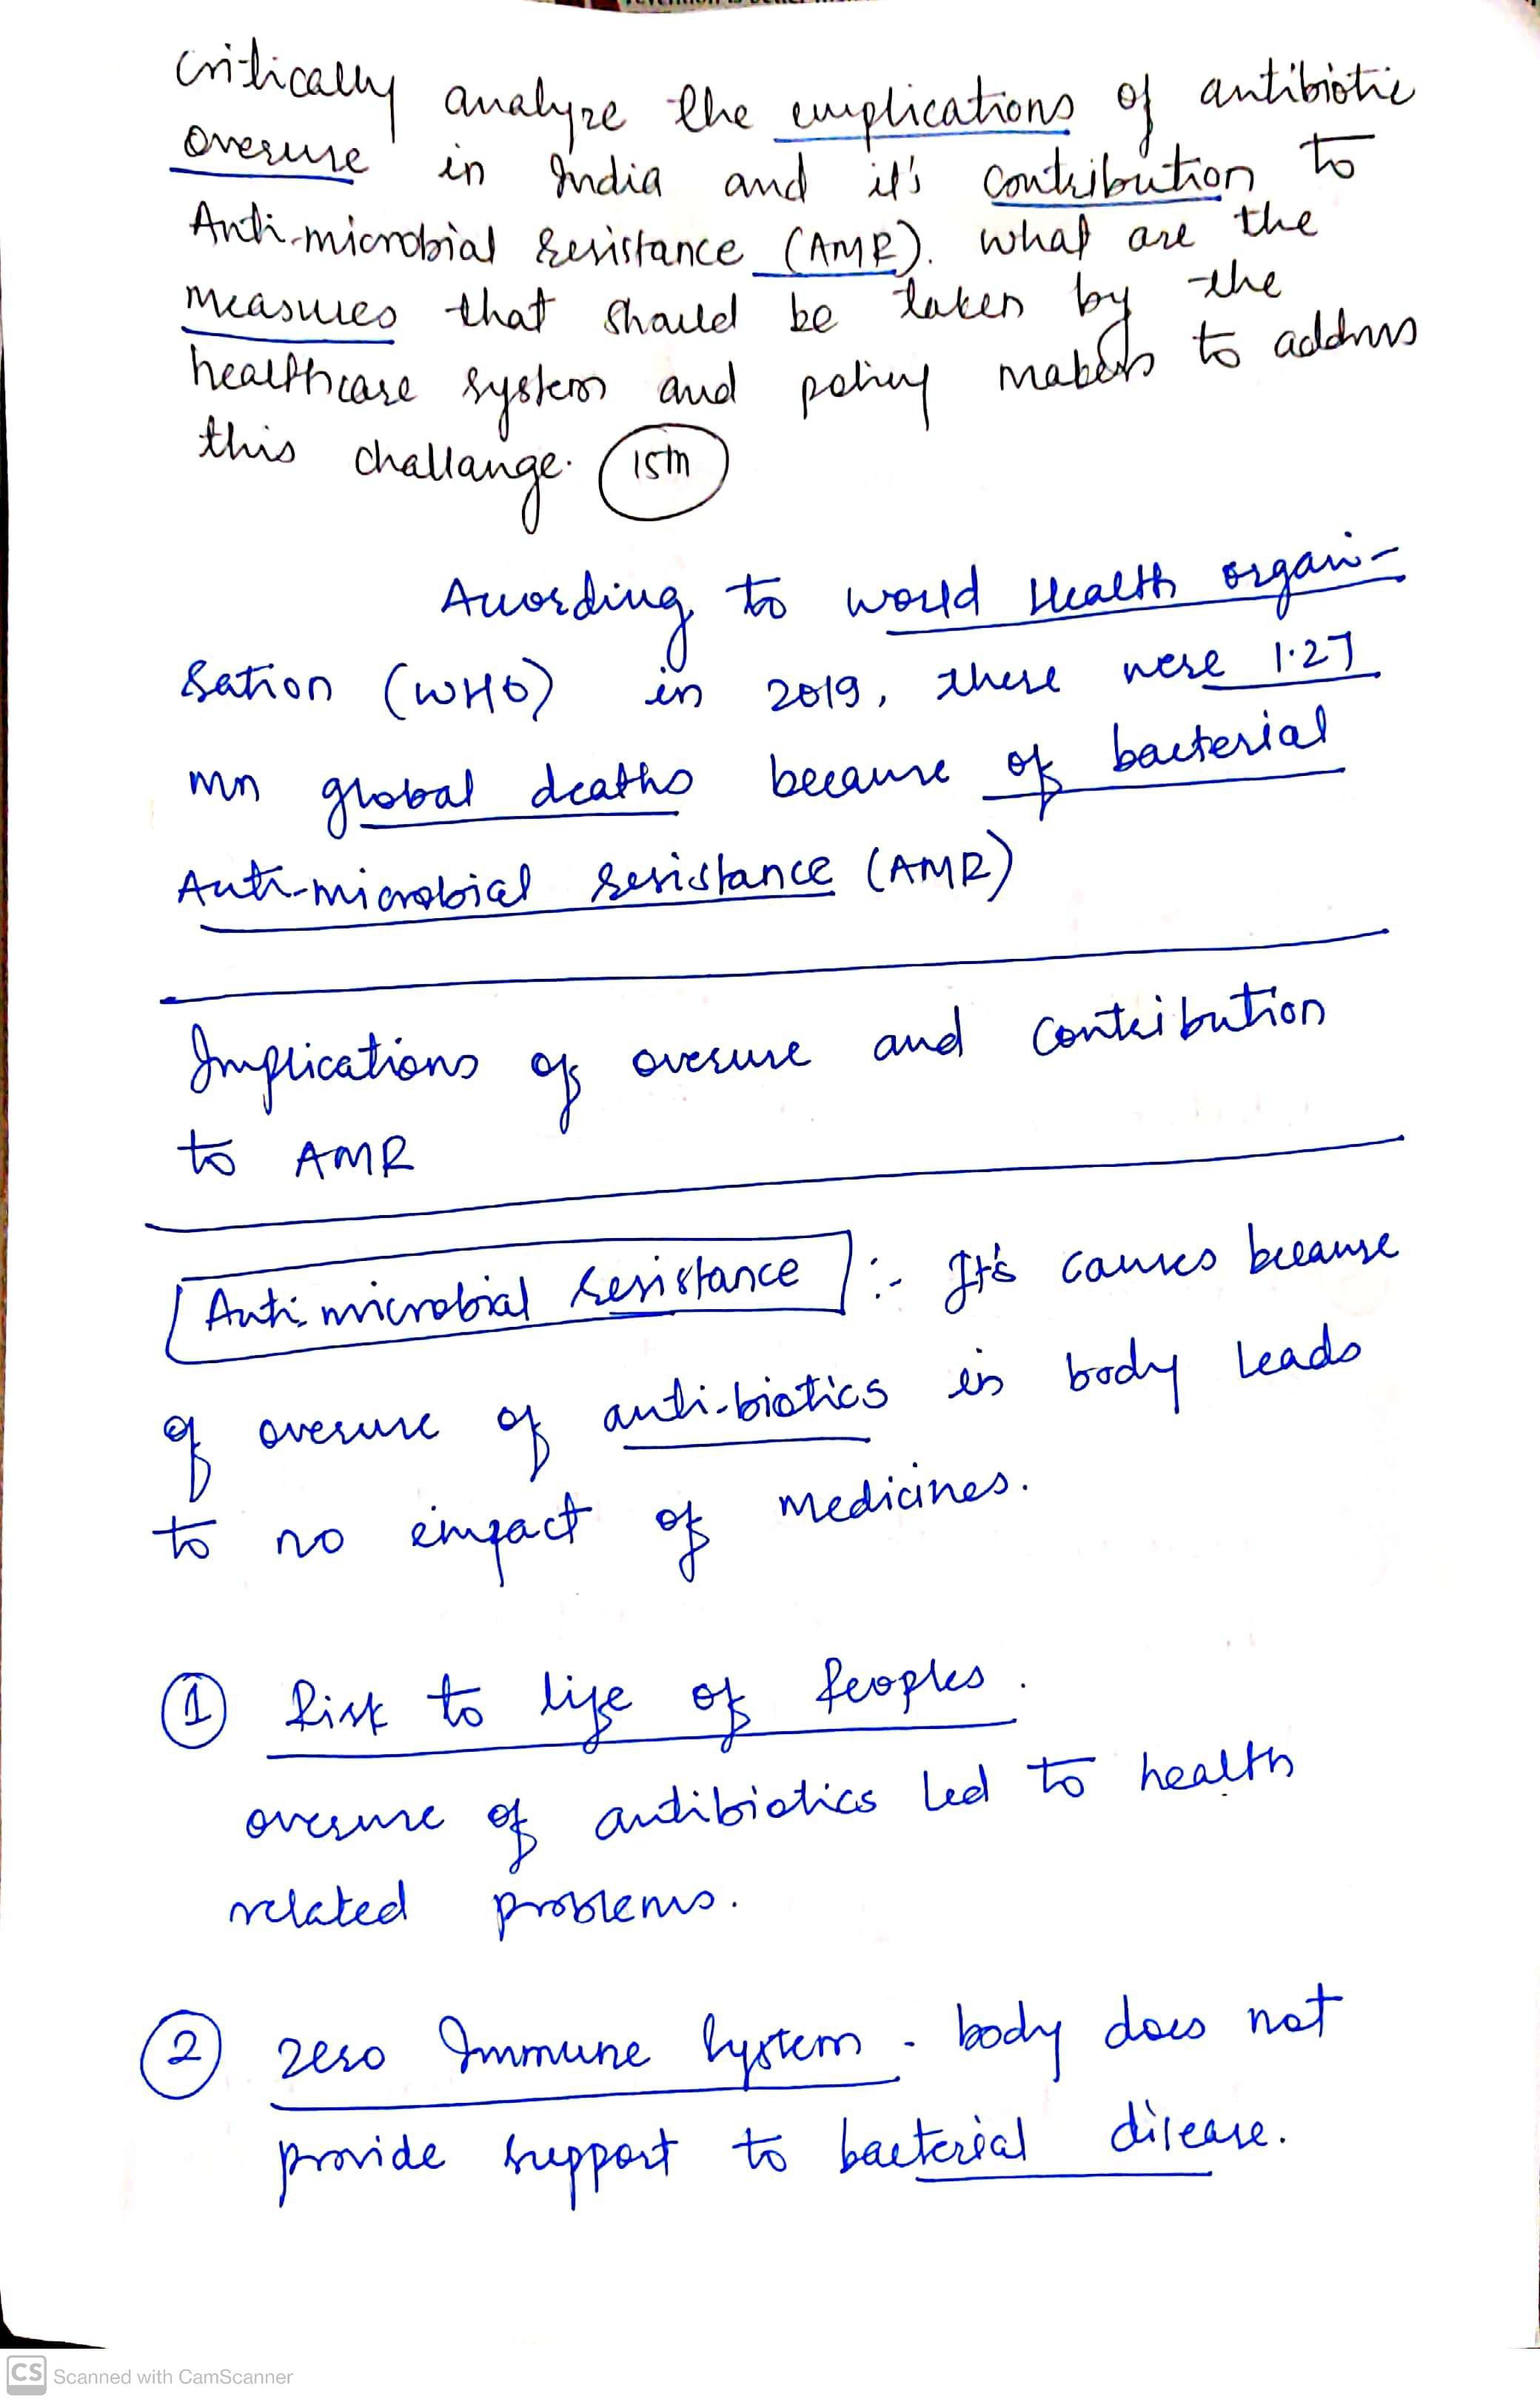 Critically analyze the implications of antibiotic
overuse in India and it's contribution to
Anti-microbial resistance (AMR). What are the
measures that should be taken by the
healthcare system and policy makers to address
this challange. 15m
According to world Health organi-
sation (WHO) in 2019, there were 1.27
mn global deaths because of bacterial
Anti-microbial resistance (AMR)
Implications of overuse and contribution
to AMR
Anti-microbial resistance :- It's causes because
of overuse of anti-biotics in body leads
to no impact of medicines.
1 Risk to life of Peoples.
overuse of antibiotics led to health
related problems.
2 zero Immune system - body does not
provide support to bacterial disease.
CS Scanned with CamScanner